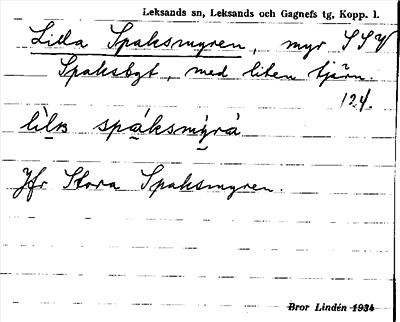 Leksands sn, Leksands och Gagnefs tg, Kopp. l.
Lilla Spaksmyren, myr SSV
Spaksbyt, med liten tjärn.
124.
spáksmýrà
Jfr Stora Spaksmyren.
Bror Lindén 1934